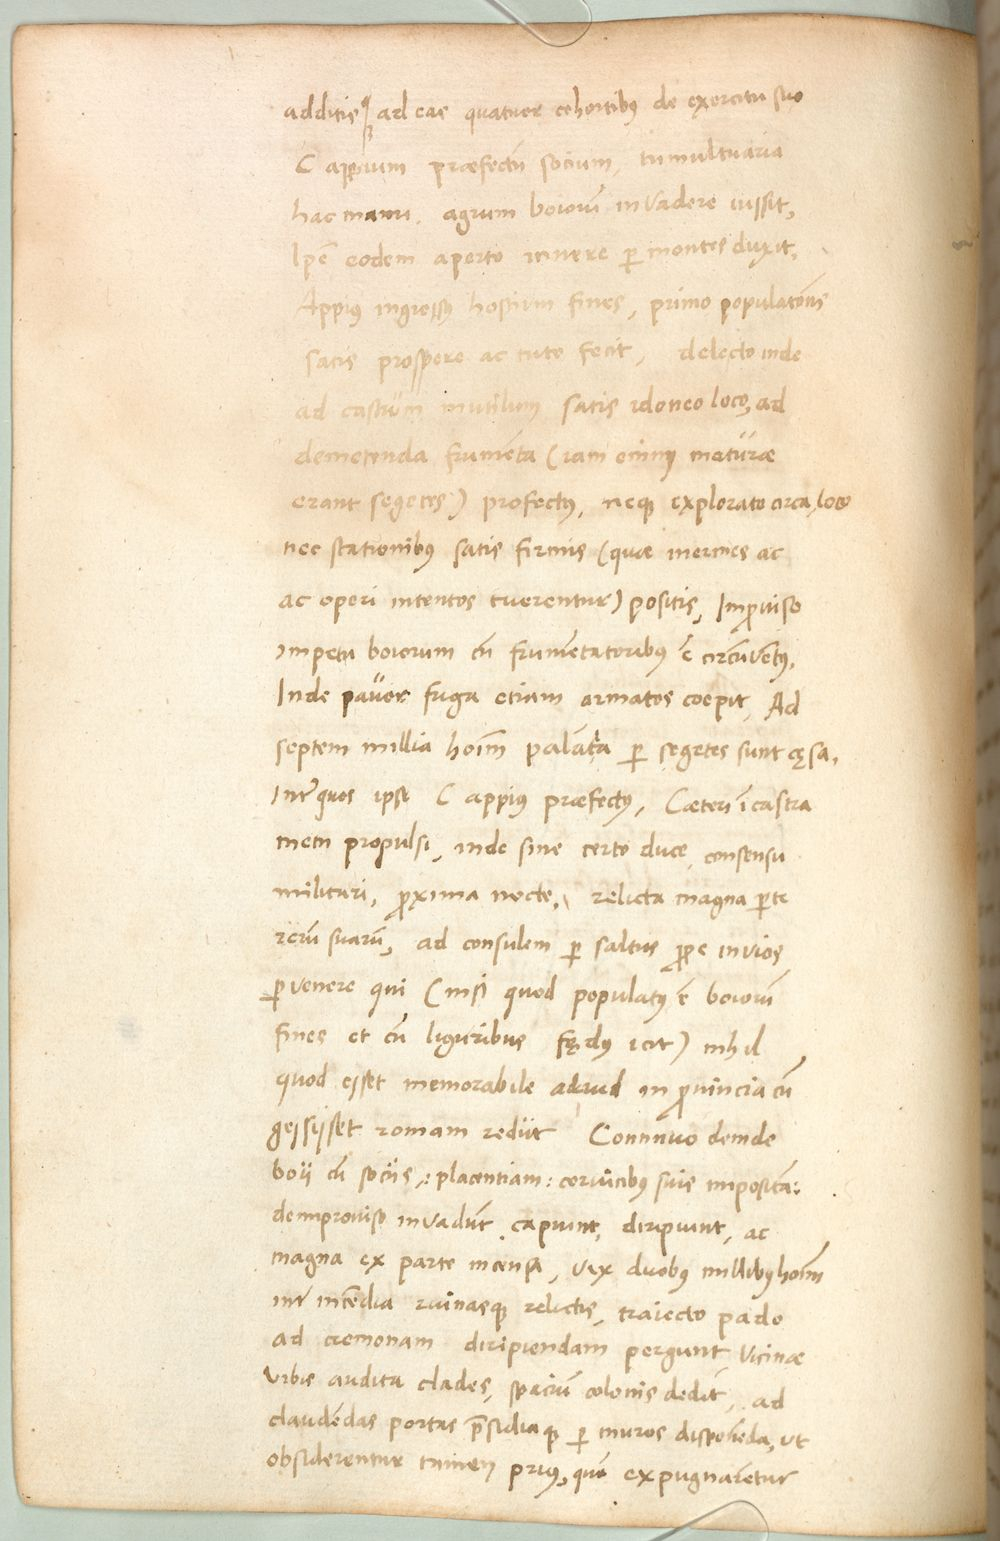 additisq; ad eas quatuor cohortibꝰ de exercitu suo
C appium præfectū socium, tumultuaria
hac manu, agrum boiorū invadere iussit,
Ipē eodem aperto itinere ꝑ montes duxit,
Appiꝰ ingressꝰ hostium fines, primo populatōnes
satis prospere ac tuto fecit, delecto inde
ad castrūm mutilum satis idoneo loco, ad
demetenda frumēta (iam enim maturæ
erant segetes) profectꝰ, neqꝫ explorato circa, loco
nec stationibꝰ satis firmis (quæ inermes ac
ac operi intentos tuerentur) positis, Improuiso
impetu boiorum cū frumētatoribus ē circūvētꝰ,
Inde pavor fuga etiam armatos coepit, Ad
septem millia hoīm palāta ꝑ segetes sunt cęsa,
Inter quos ipse C appius præfectꝰ, Cæteri ī castra
metu propulsi, inde sine certo duce consensu
militari, ꝓxima nocte, relicta magna ꝑte
rerū suarū, ad consulem ꝑ saltus ꝓpe invios
ꝑvenere qui (nisi quod populatꝰ ē boiorū
fines et cū liguribus fędꝰ icit) nihil
quod esset memorabile aliud in ꝓuincia cū
gessisset romam rediit Continuo deinde
boij cū socijs, placentiam: ceruicibꝰ suis impositā:
deimprouiso invadūt, capiunt, diripiunt, ac
magna ex parte incensa, vix duobꝰ millibꝰ hoīm
inter incēdia ruinasqꝫ relictis, traiecto pado
ad cremonam diripiendam pergunt, Vicinæ
vrbis audita clades, spaciū colonis dedit, ad
claudēdas portas p̄sidiaqꝫ ꝑ muros dispōneda, ut
obsiderentur tamen priꝰ, quā expugnarētur